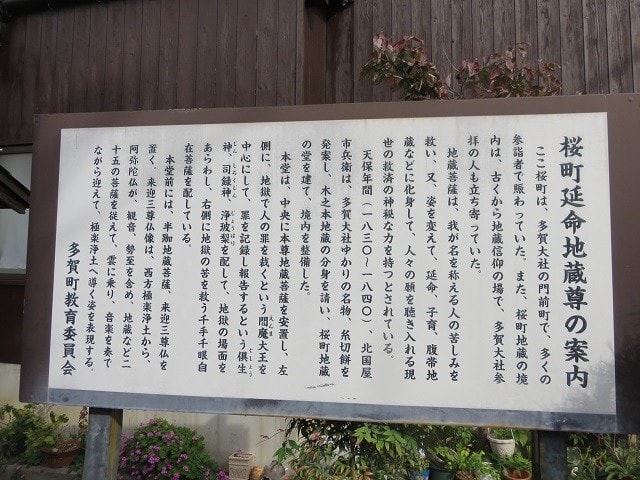 桜町延命地蔵尊の案内
ここ桜町は、多賀大社の門前町で、多くの
参詣者で賑わっていた。また、桜町地蔵の境
内は、古くから地蔵信仰の場で、多賀大社参
拝の人も立ち寄っていた。
地蔵菩薩は、我が名を称える人の苦しみを
救い、又、姿を変えて、延命、子育、腹帯地
蔵などに化身して、人々の願を聴き入れる現
世の救済の神秘な力を持つとされている。
天保年間（一八三〇～一八四〇）、北国屋
市兵衛は、多賀大社ゆかりの名物、糸切餅を
発案し、木之本地蔵の分身を請い、桜町地蔵
の堂を建て、境内を整備した。
本堂は、中央に本尊地蔵菩薩を安置し、左
側に、地獄で人の罪を裁くという閻魔大王を
中心にして、罪を記録し報告するという倶生
神、司録神、浄玻梨を配して、地獄の場面を
あらわし、右側に地獄の苦を救う千手千眼自
在菩薩を配している。
本堂前には、半跏地蔵菩薩、来迎三尊仏を
置く、来迎三尊仏像は、西方極楽浄土から、
阿弥陀仏が、観音、勢至を含め、地蔵など二
十五の菩薩を従えて、雲に乗り、音楽を奏で
ながら迎えて、極楽浄土へ導く姿を表現する。
多賀町教育委員会